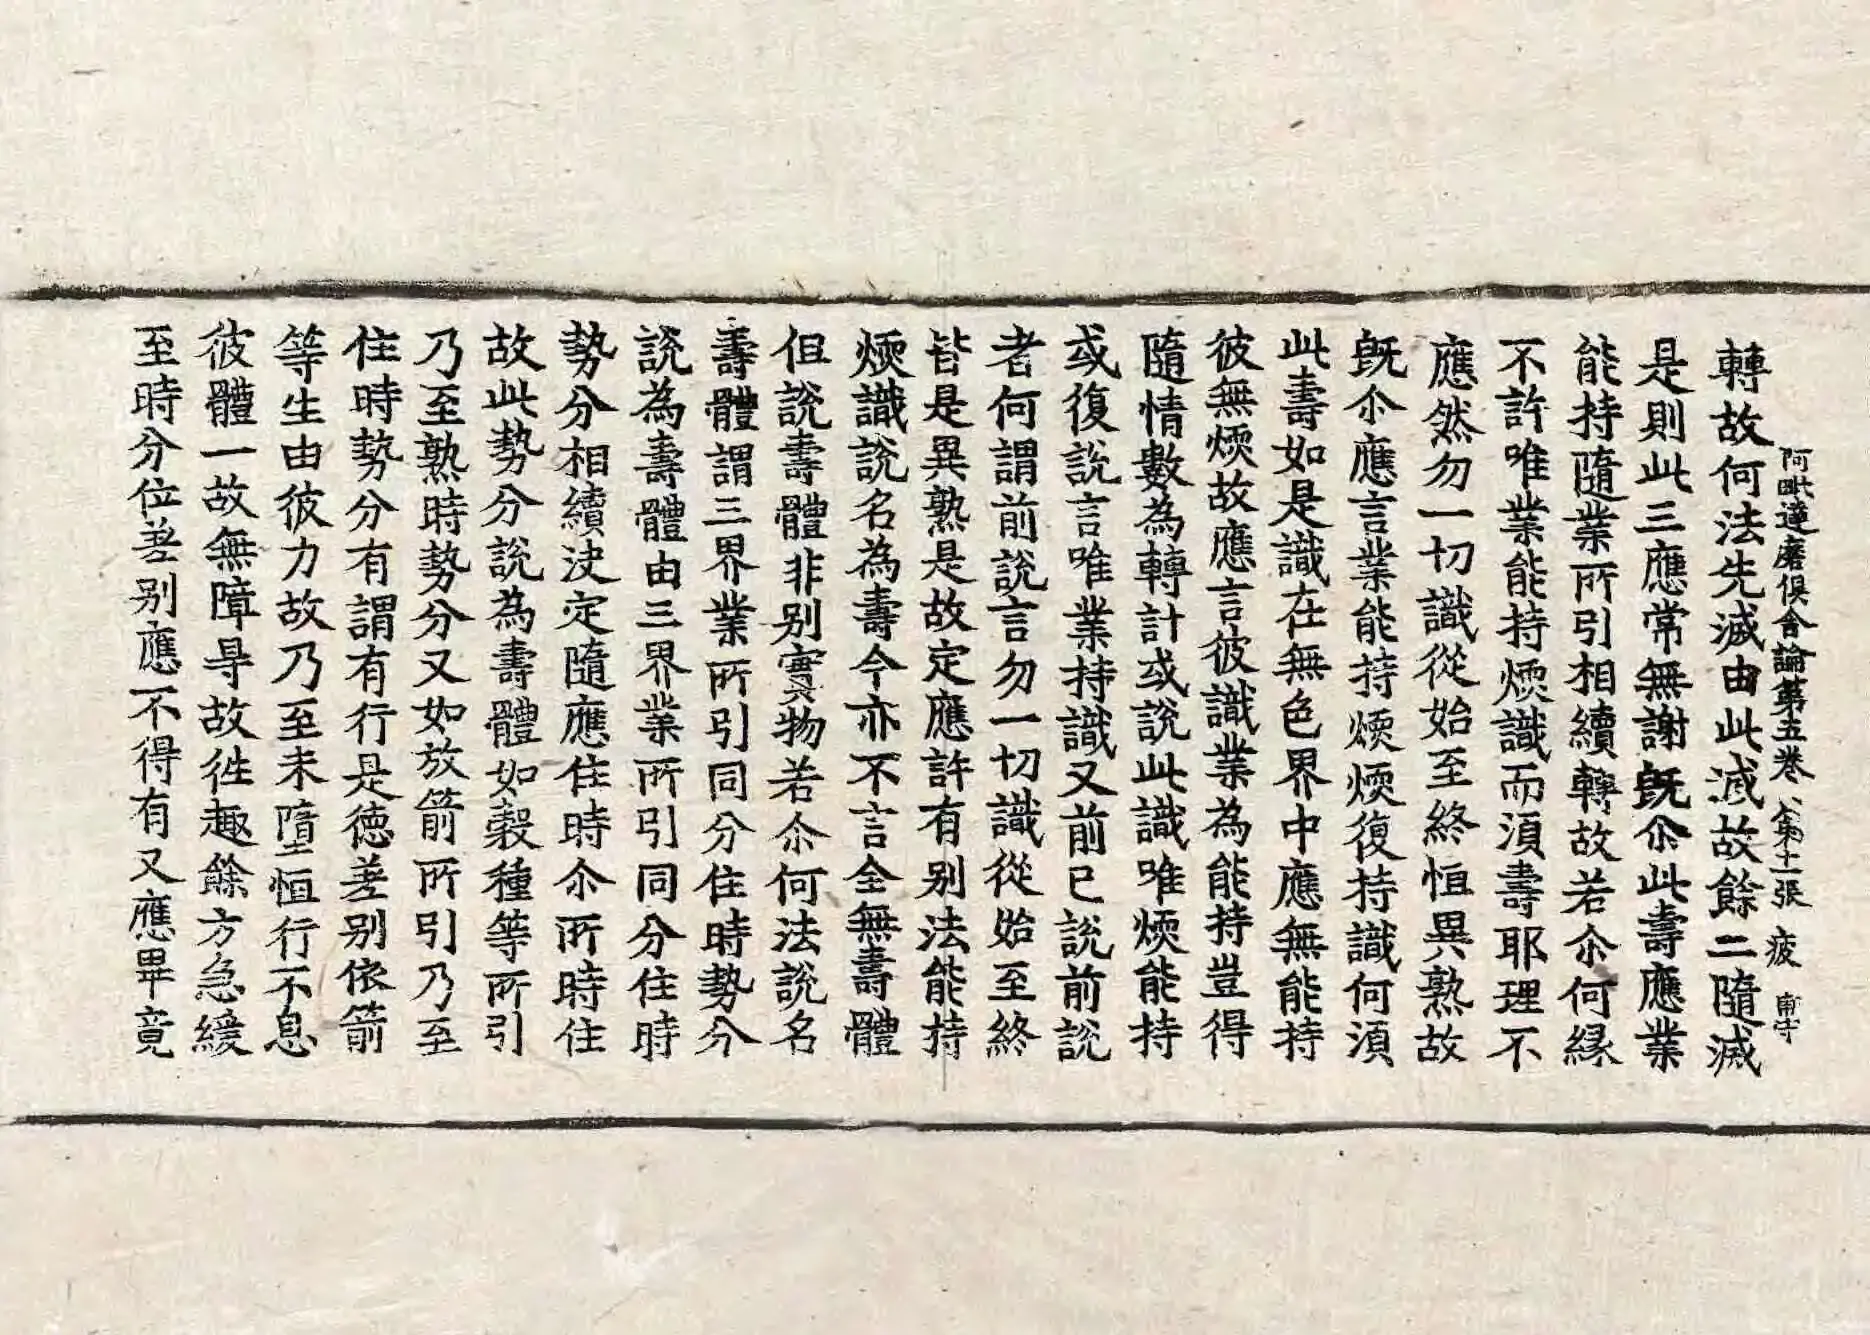 阿毗達磨俱舍論第五卷 第十一張 疲
轉故何法先滅由此滅故餘二隨滅
是則此三應常無謝旣尒此壽應業
能持隨業所引相續轉故若尒何緣
不許唯業能持煗識而湏壽耶理不
應然勿一切識從始至終恒異熟故
旣尒應言業能持煗煗復持識何湏
此壽如是識在無色界中應無能持
彼無煗故應言彼識業為能持豈得
隨情數為轉計或說此識唯煗能持
或復說言唯業持識又前已說前說
者何謂前說言勿一切識從始至終
皆是異熟是故定應許有別法能持
煗識說名為壽今亦不言全無壽體
但說壽體非別實物若尒何法說名
壽體謂三界業所引同分住時勢分
說為壽體由三界業所引同分住時
勢分相續決定隨應住時尒所時住
故此勢分說為壽體如穀種等所引
乃至熟時勢分又如放箭所引乃至
住時勢分有謂有行是德差別依箭
等生由彼力故乃至未墮恒行不息
彼體一故無障㝵故徃趣餘方急緩
至時分位差別應不得有又應畢竟